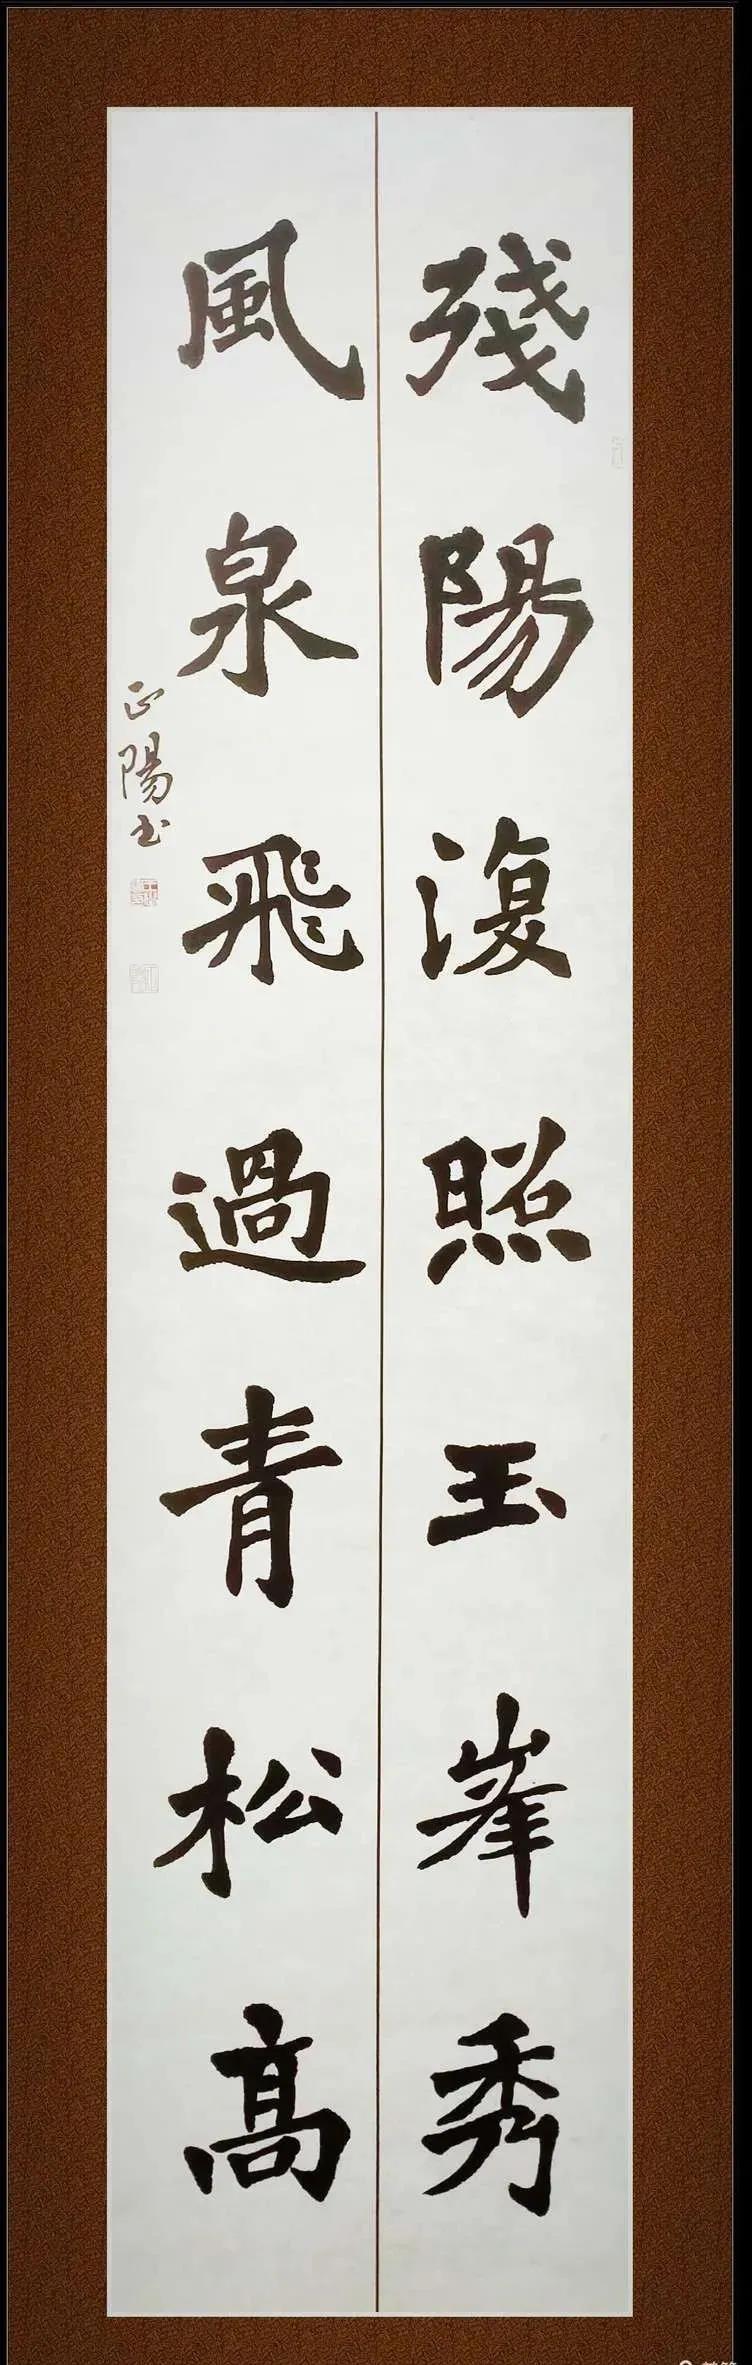 殘陽復照玉峯秀
風泉飛過青松高
正陽书